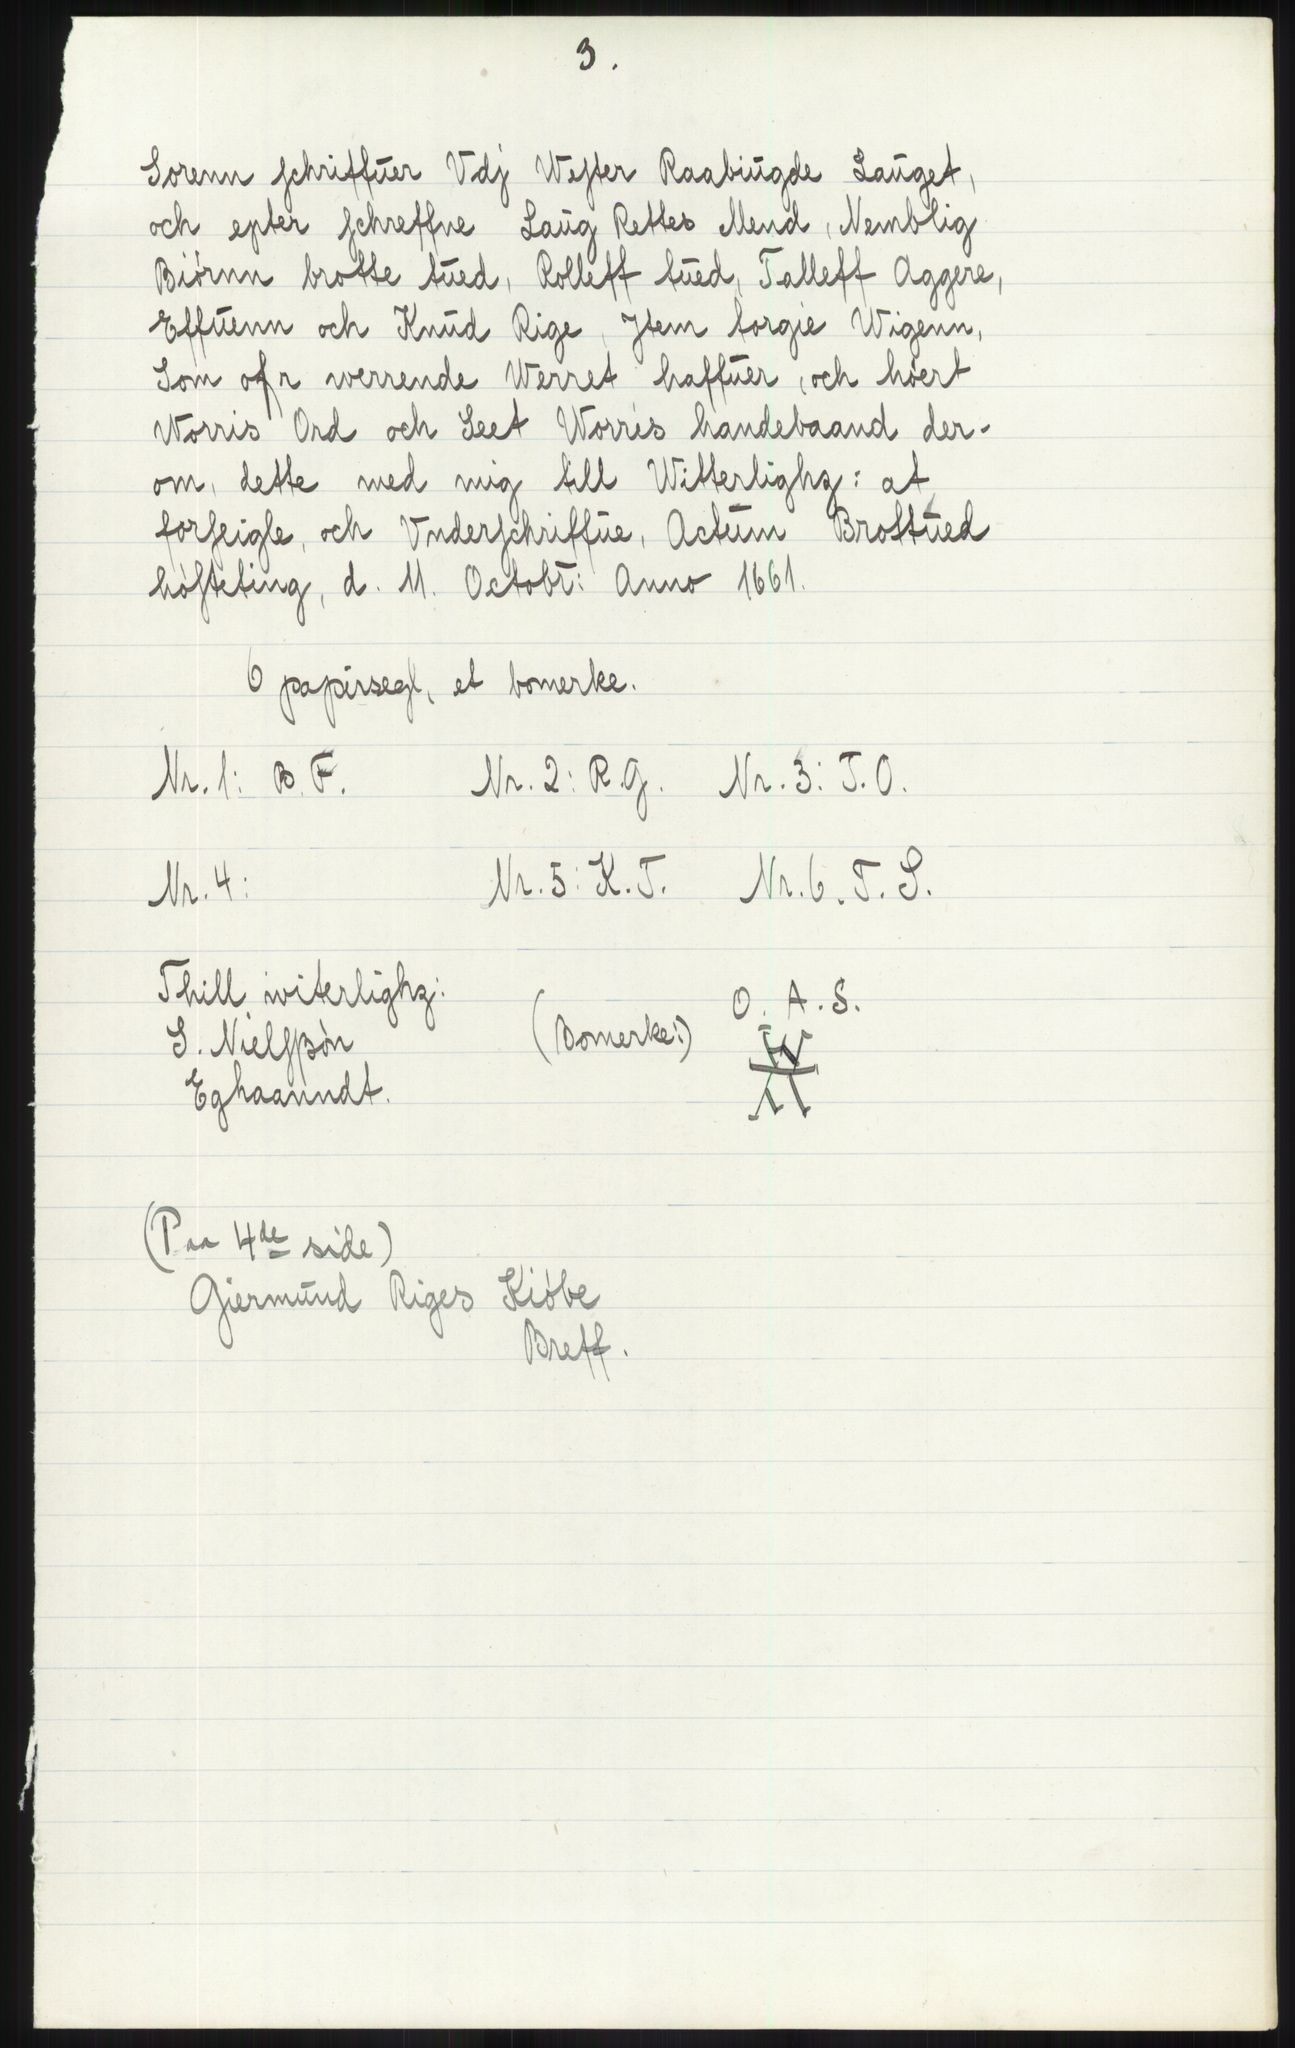 3.
Sorenn schriffuer Vdj Wester Raabiugde Lauget,
och epter schreffne Laug Rettes Mend, Nemblig
Biörnn brotte tued, Rolleff tued, Talleff Aggere,
Effuenn och Knud Rige, Jtem torgie Wigenn,
Som ofr werrende Werret haffuer, och höert
Worris Ord och Seet Worris handebaand der-
om, dette med mig till Witterlighz: at
forseigle, och Vnderschriffue, Actum Brottued
höfteting, d. 11. Octobr: Anno 1661.
6 papirsegl, et bomerke.
Nr. 1: B. F. Nr. 2: R. G. Nr. 3: T. O.
Nr. 4: Nr. 5: K. T. Nr. 6. T. S.
Thill witerlighz: O. A. S.
S. Nielsßön (Bomerke:)
Eghaanndt.
(Paa 4de side)
Giermund Riges Kiöbe
Breff.